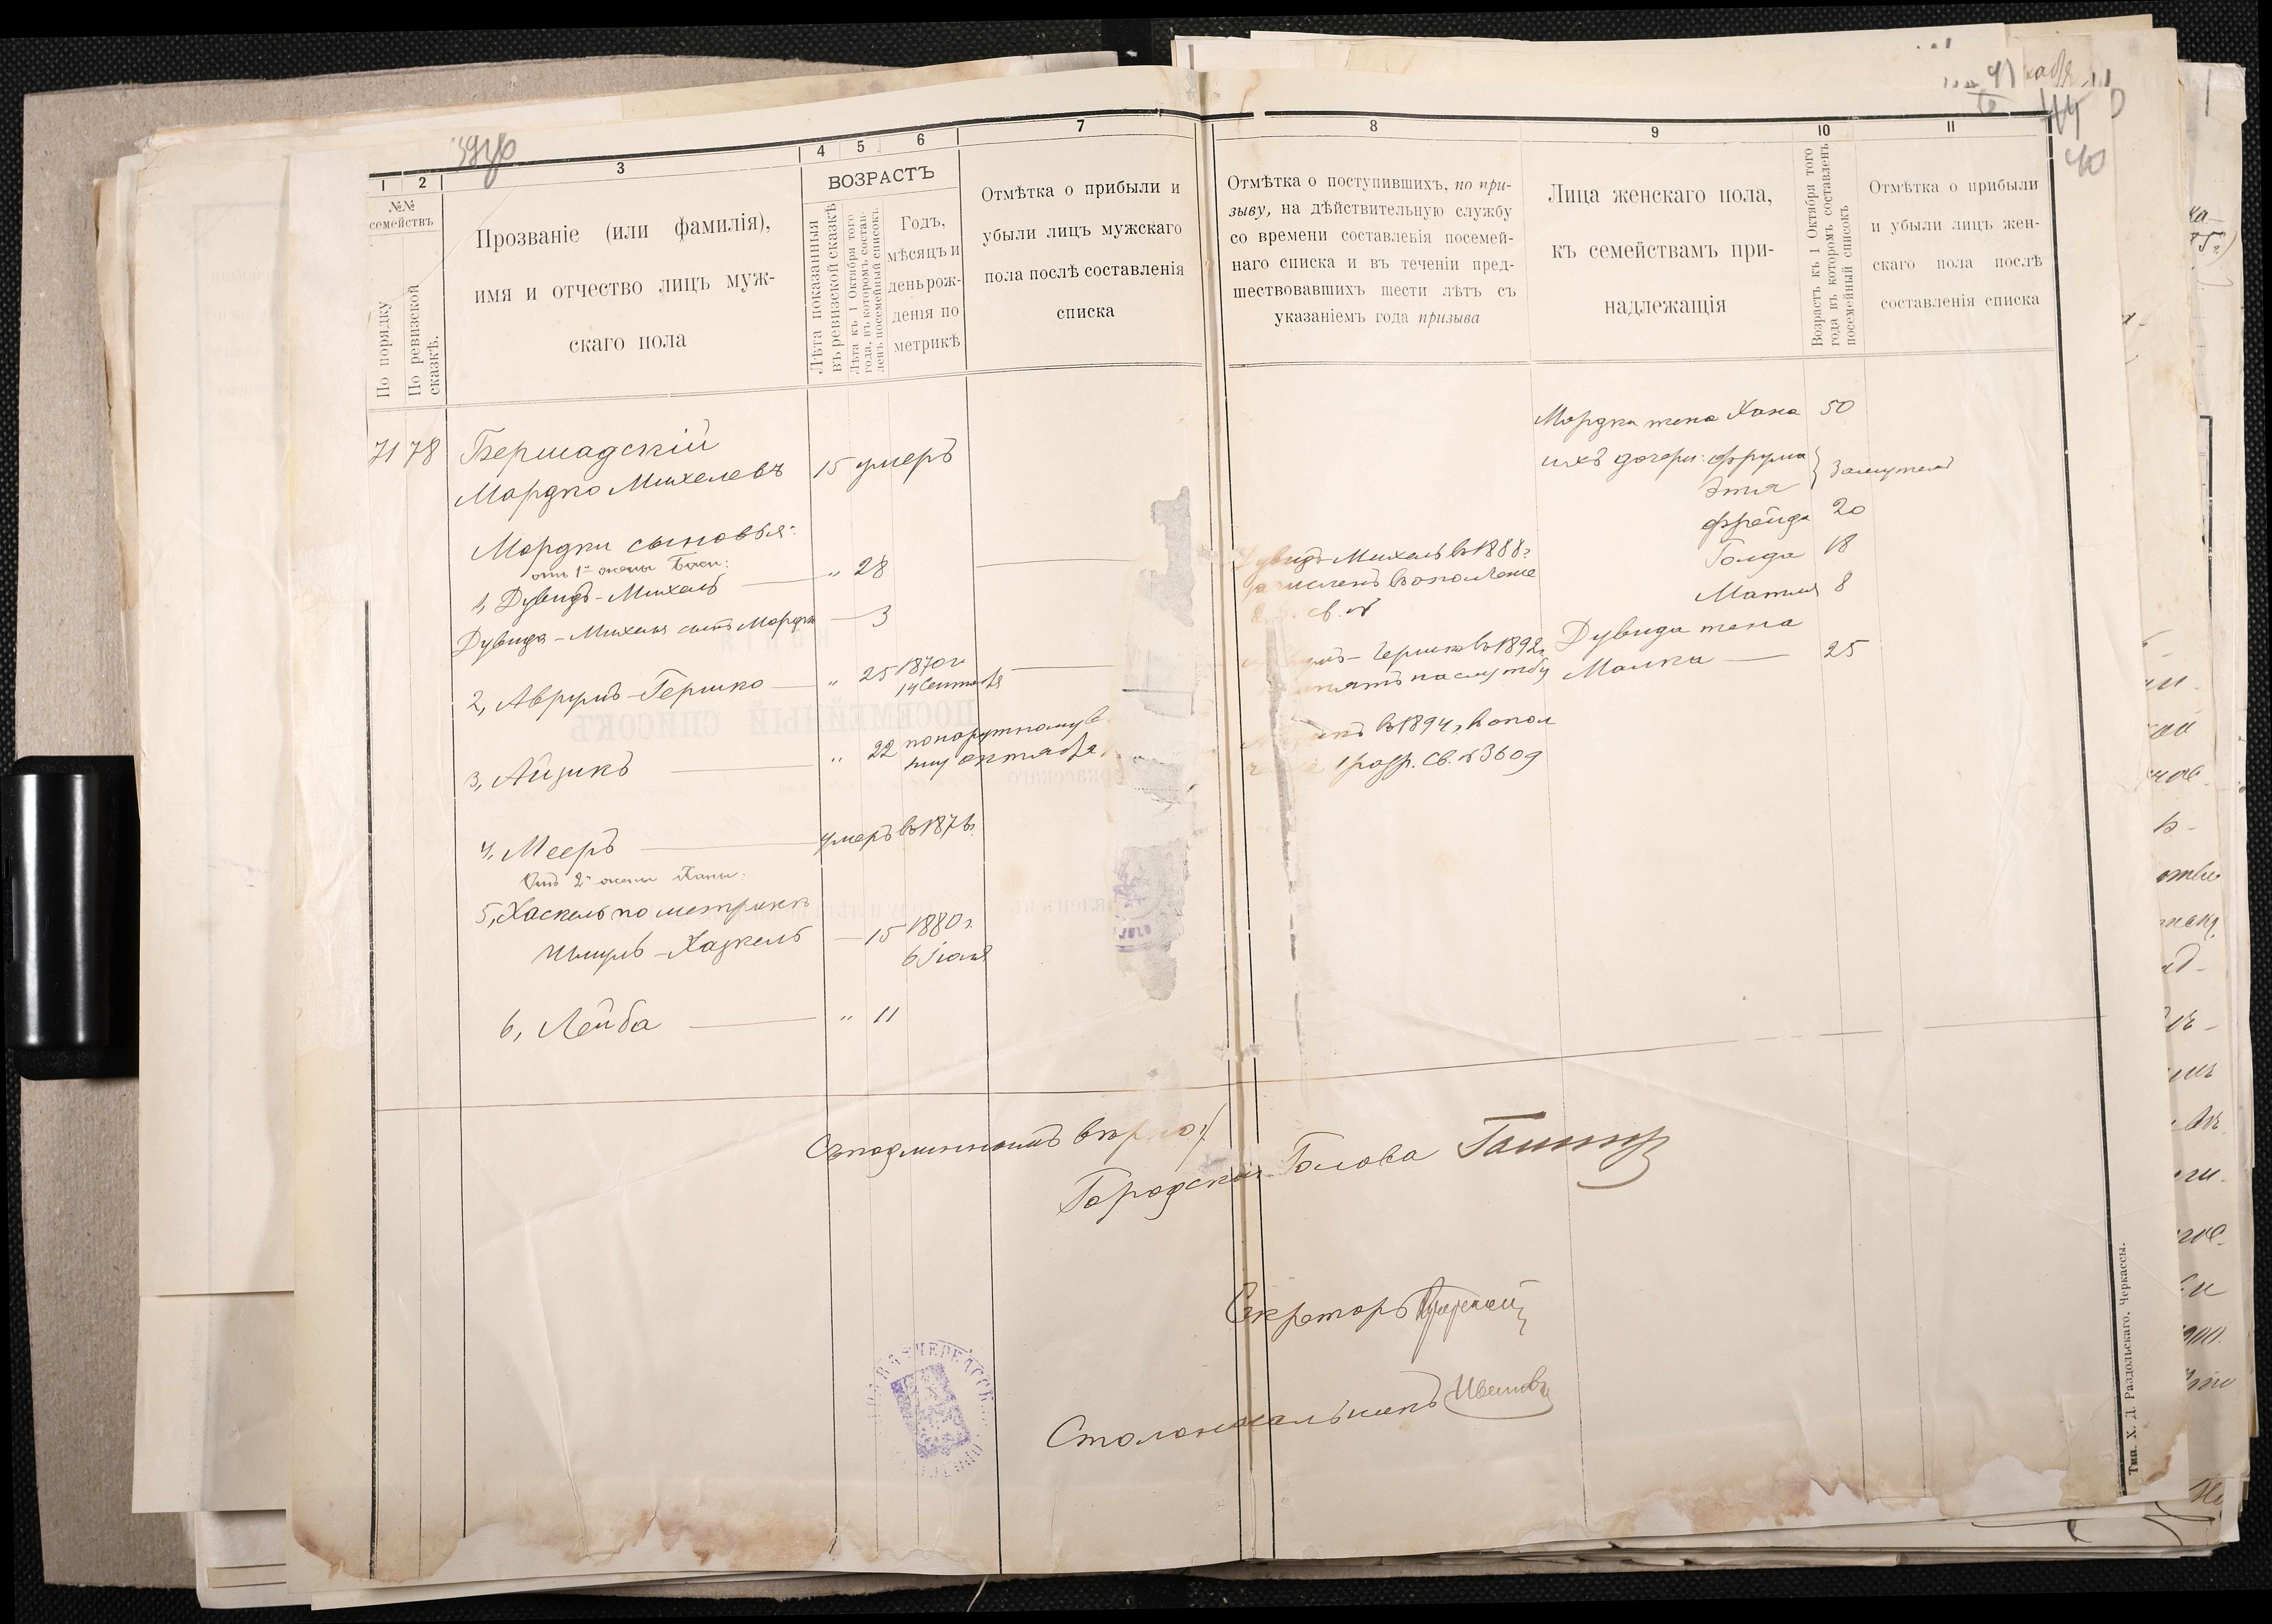 1
2
3
4
5
6
7
8
9
10
11
№№
семействъ
По порядку
По ревизской
сказкѣ.
Прозваніе (или фамилія),
имя и отчество лицъ муж-
скаго пола
ВОЗРАСТЪ
Лѣта показанныя
въ ревизской сказкѣ
Лѣта къ 1 Октября того
года, въ которомъ состав-
ленъ посемейный списокъ
Годъ,
мѣсяцъ и
день рож-
денія по
метрикѣ
Отмѣтка о прибыли и
убыли лицъ мужскаго
пола послѣ составленія
списка
Отмѣтка о поступившихъ, по при-
зыву, на дѣйствительную службу
со времени составленія посемей-
наго списка и въ теченіи пред-
шествовавшихъ шести лѣтъ съ
указаніемъ года призыва
Лица женскаго пола,
къ семействамъ при-
надлежащія
Возрастъ къ 1 Октября того
года въ которомъ составленъ
посемейный списокъ
Отмѣтка о прибыли
и убыли лицъ жен-
скаго пола послѣ
составленія списка
71 78 Бершадскій
Мордко Михелевъ 15 умеръ
Мордки сыновья:
отъ 1й жены Баси:
1, Дувидъ-Михель " 28
Дувида-Михеля сынъ Мордко 3
2, Аврумъ-Гершко " 25 1870 г.
14 Сентября
3, Айзикъ " 22 по наружному в
иду октября
4, Мееръ умеръ въ 187
Отъ 2й жены Ханы:
5, Хаскель по метрикѣ
Хазкель 15 1880 г.
6 Іюля
6, Лейба " 11
Дувидъ Михель въ 1888 г.
зачисленъ въ ополченіе
св. №
Гершко въ 1892 г.
принятъ на службу
въ 1894 г. въ опол
1 разр. св. № 3609
Мордки жена Хана 50
ихъ дочери: Фрума
Этя
Замужемъ
Фрейда 20
Голда 18
Матля 8
Дувида жена
Малка 25
Съ подлиннымъ вѣрно:
Городской Голова
Секретарь
Столоначальникъ Ивановъ
40
Тип. Х. Д. Раздольскаго, Черкассы.